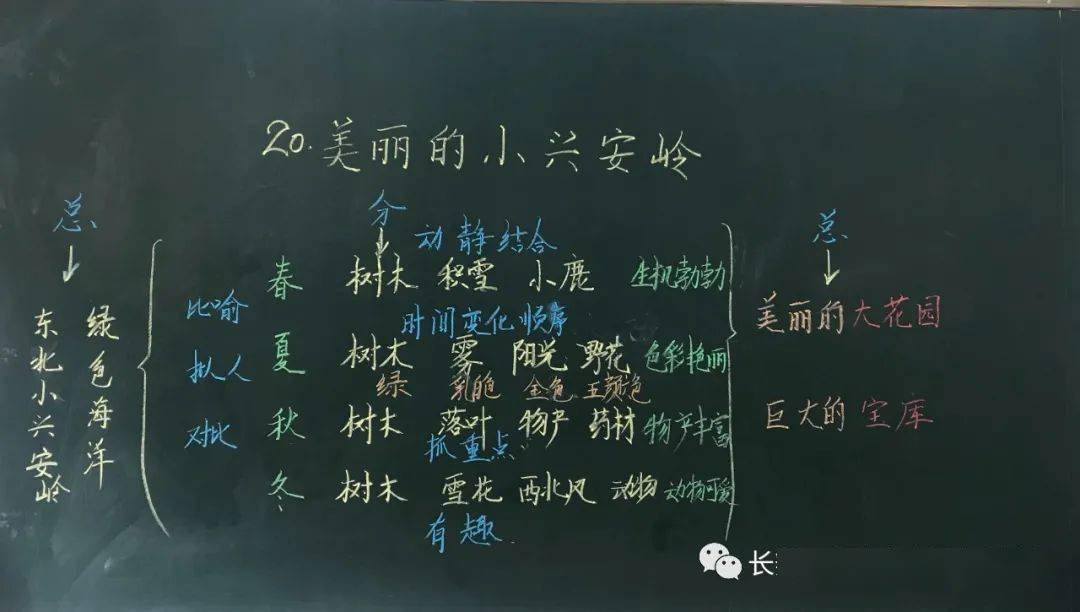 20.美丽的小兴安岭
总 分 总
动静结合
春 树木 积雪 小鹿 生机勃勃
东北小兴安岭
绿色海洋
比喻
时间变化顺序
美丽的大花园
拟人
夏 树木 雾 阳光 野花 色彩艳丽
绿 乳白色 金色 五颜六色
对比
秋 树木 落叶 物产 药材 物产丰富
巨大的宝库
抓重点
冬 树木 雪花 西北风 动物 动物可爱
有趣
长